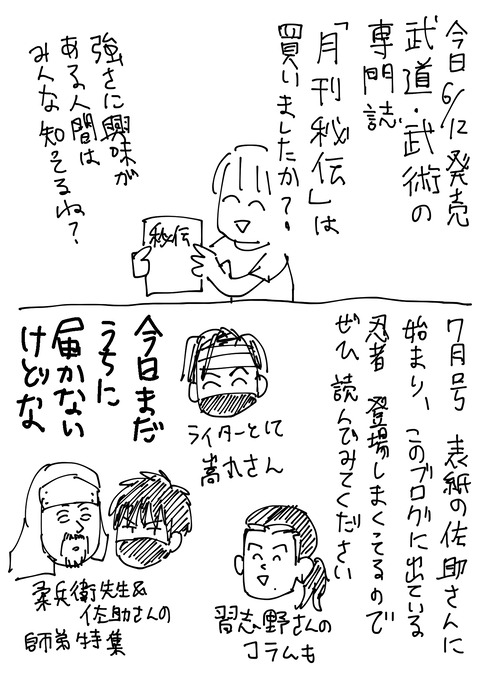 今日6/12発売
武道・武術の
専門誌
「月刊秘伝」は
買いましたか?
強さに興味が
ある人間は
みんな知ってるね?
秘伝
7月号 表紙の佐助さんに
始まり、このブログに出ている
忍者 登場しまくってるので
ぜひ読んでみてください
ライターとして
嵩丸さん
今日まだ
うちに
届かない
けどな
柔兵衛先生&
佐助さんの
師弟特集
習志野さんの
コラムも